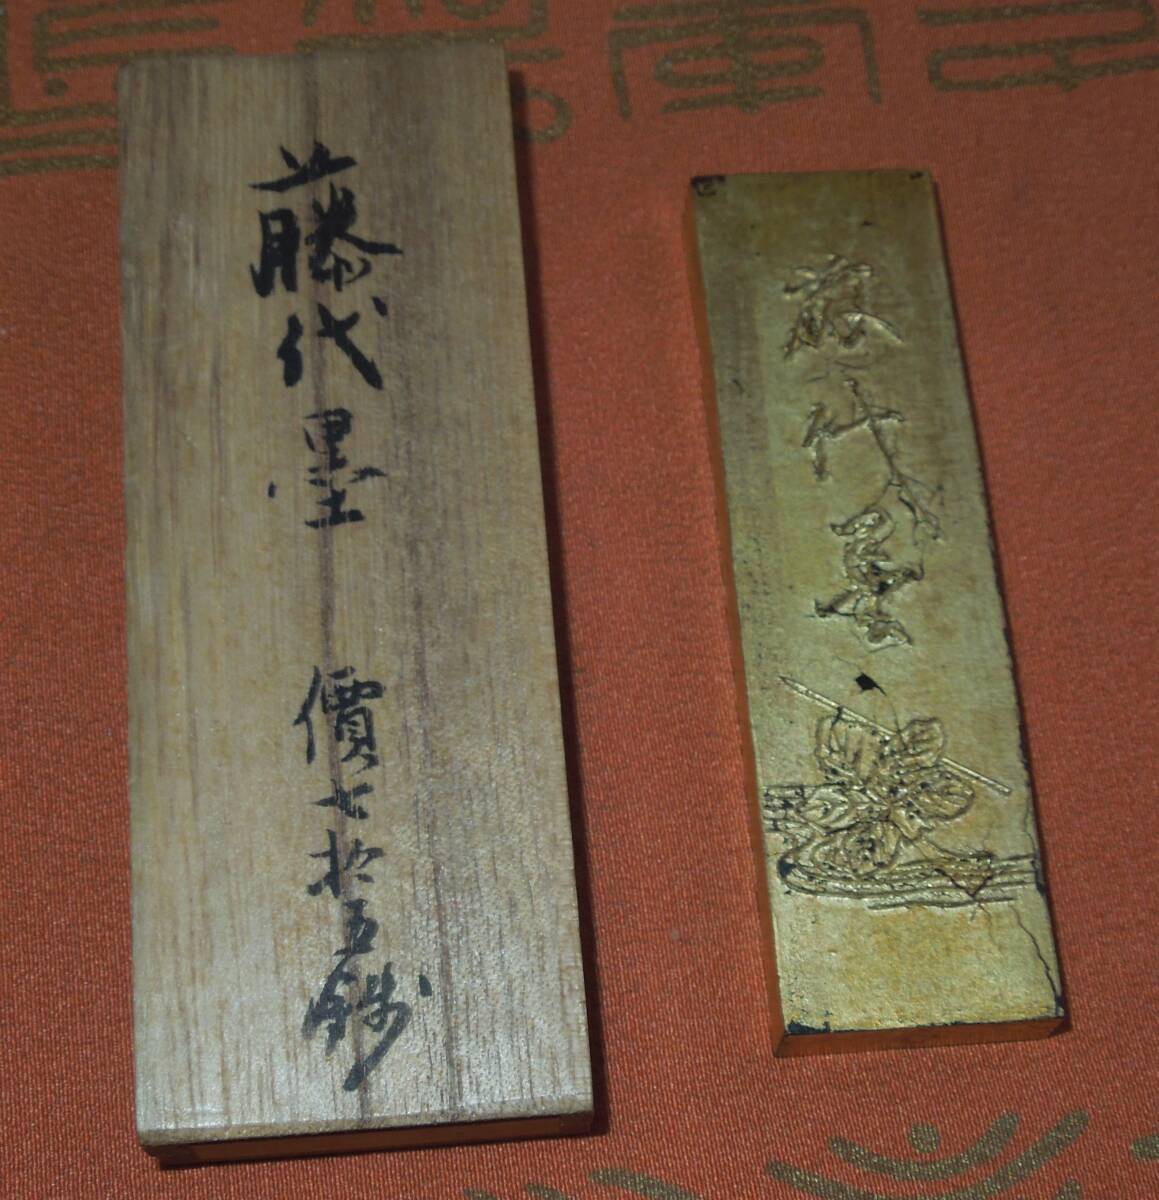 藤代墨
價七拾五銭
藤代墨